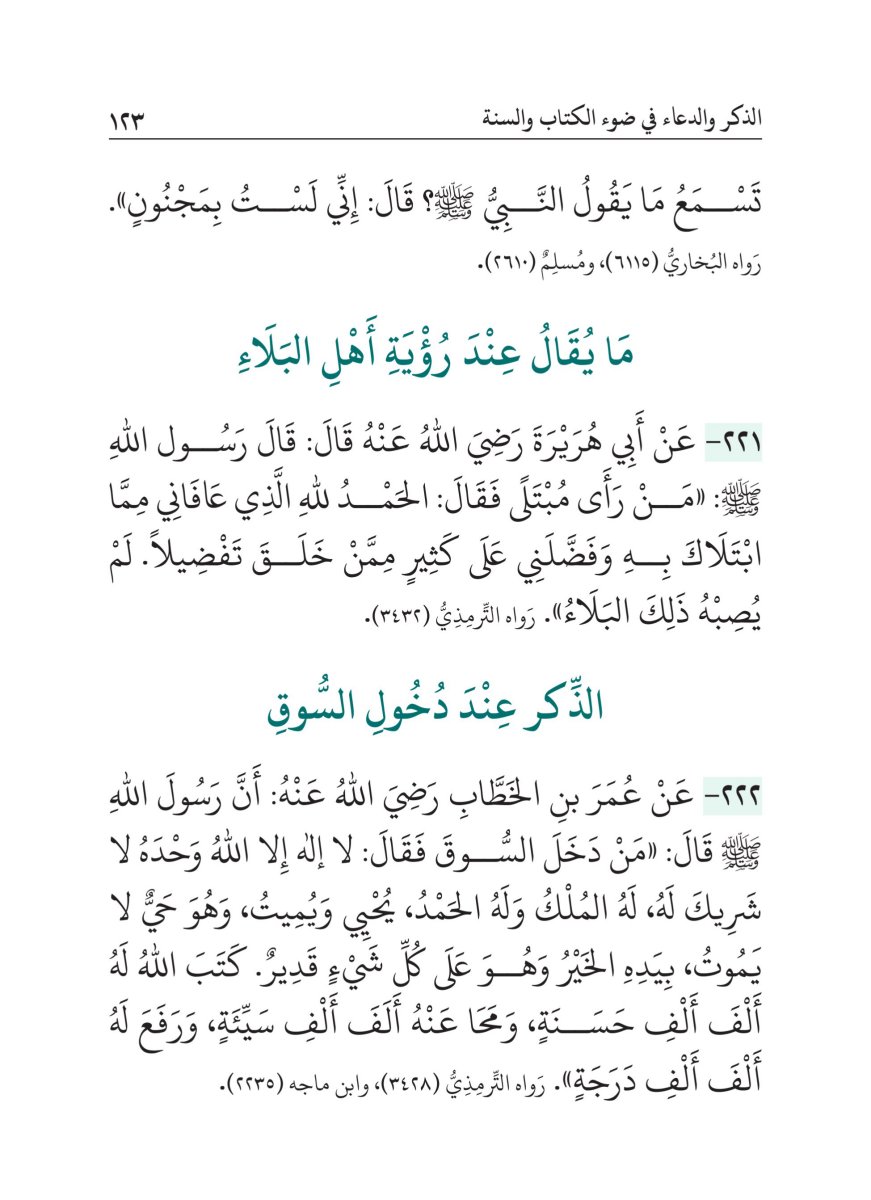 الذكر والدعاء في ضوء الكتاب والسنة ١٢٣
تَسْمَعُ مَا يَقُولُ النَّبِيُّ ﷺ؟ قَالَ: إِنِّي لَسْتُ بِمَجْنُونٍ».
رَواه البُخاريُّ (٦١١٥)، ومُسلِمٌ (٢٦١٠).
مَا يُقَالُ عِنْدَ رُؤْيَةِ أَهْلِ البَلَاءِ
٢٢١- عَنْ أَبِي هُرَيْرَةَ رَضِيَ اللهُ عَنْهُ قَالَ: قَالَ رَسُول اللهِ
ﷺ: «مَنْ رَأَى مُبْتَلًى فَقَالَ: الحَمْدُ للهِ الَّذِي عَافَانِي مِمَّا
ابْتَلَاكَ بِهِ وَفَضَّلَنِي عَلَى كَثِيرٍ مِمَّنْ خَلَقَ تَفْضِيلاً. لَمْ
يُصِبْهُ ذَلِكَ البَلَاءُ». رَواه التِّرمِذِيُّ (٣٤٣٢).
الذِّكر عِنْدَ دُخُولِ السُّوقِ
٢٢٢- عَنْ عُمَرَ بنِ الخَطَّابِ رَضِيَ اللهُ عَنْهُ: أَنَّ رَسُولَ اللهِ
ﷺ قَالَ: «مَنْ دَخَلَ السُّوقَ فَقَالَ: لا إلٰه إِلا اللهُ وَحْدَهُ لا
شَرِيكَ لَهُ، لَهُ المُلْكُ وَلَهُ الحَمْدُ، يُحْيِي وَيُمِيتُ، وَهُوَ حَيٌّ لا
يَمُوتُ، بِيَدِهِ الخَيْرُ وَهُوَ عَلَى كُلِّ شَيْءٍ قَدِيرٌ. كَتَبَ اللهُ لَهُ
أَلْفَ أَلْفِ حَسَنَةٍ، وَمَحَا عَنْهُ أَلَفَ أَلْفِ سَيِّئَةٍ، وَرَفَعَ لَهُ
أَلْفَ أَلْفِ دَرَجَةٍ». رَواه التِّرمِذِيُّ (٣٤٢٨)، وابن ماجه (٢٢٣٥).